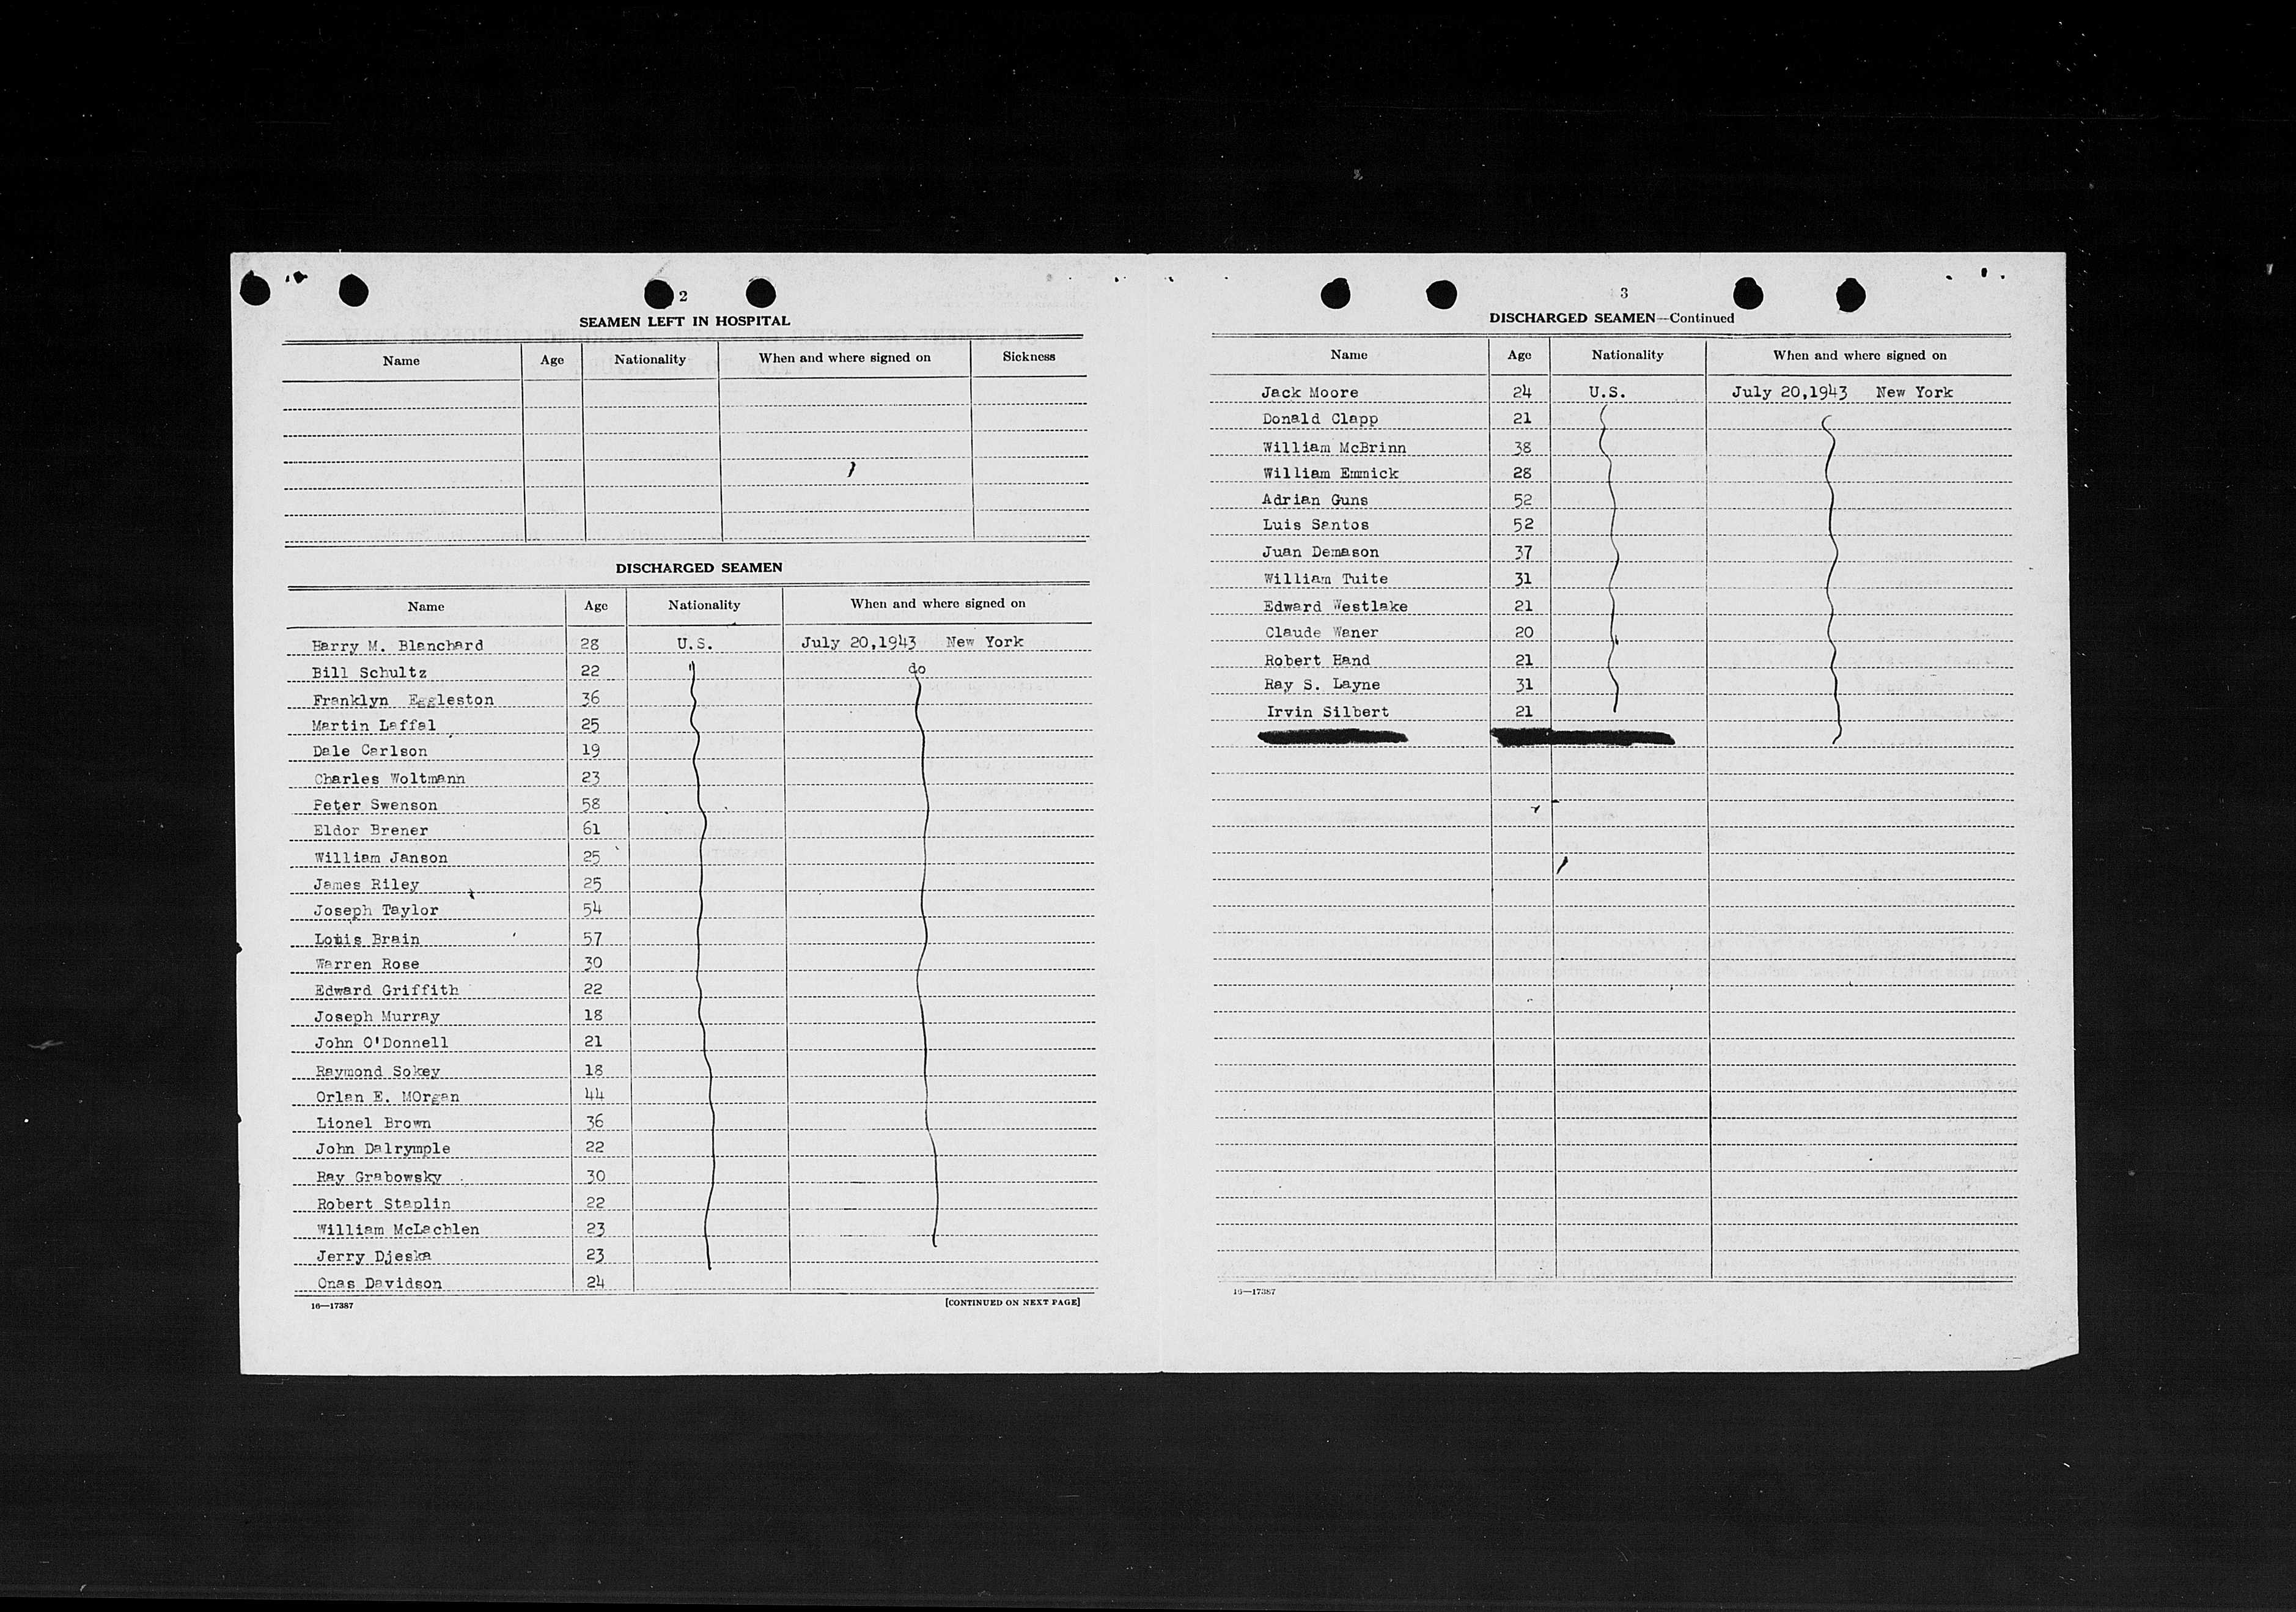 2
SEAMEN LEFT IN HOSPITAL
Name Age Nationality When and where signed on Sickness
DISCHARGED SEAMEN
Name Age Nationality When and where signed on
Harry M. Blanchard 28 U.S. July 20,1943 New York
Bill Schultz 22 " do
Franklyn Eggleston 36
Martin Laffal 25
Dale Carlson 19
Charles Woltmann 23
Peter Swenson 58
Eldor Brener 61
William Janson 25
James Riley 25
Joseph Taylor 54
Louis Brain 57
Warren Rose 30
Edward Griffith 22
Joseph Murray 18
John O'Donnell 21
Raymond Sokey 18
Orlan E. MOrgan 44
Lionel Brown 36
John Dalrymple 22
Ray Grabowsky 30
Robert Staplin 22
William McLachlen 23
Jerry Djeska 23
Onas Davidson 24
16—17387 [CONTINUED ON NEXT PAGE]
3
DISCHARGED SEAMEN—Continued
Name Age Nationality When and where signed on
Jack Moore 24 U.S. July 20,1943 New York
Donald Clapp 21
William McBrinn 38
William Emmick 28
Adrian Guns 52
Luis Santos 52
Juan Demason 37
William Tuite 31
Edward Westlake 21
Claude Waner 20
Robert Hand 21
Ray S. Layne 31
Irvin Silbert 21
16—17387